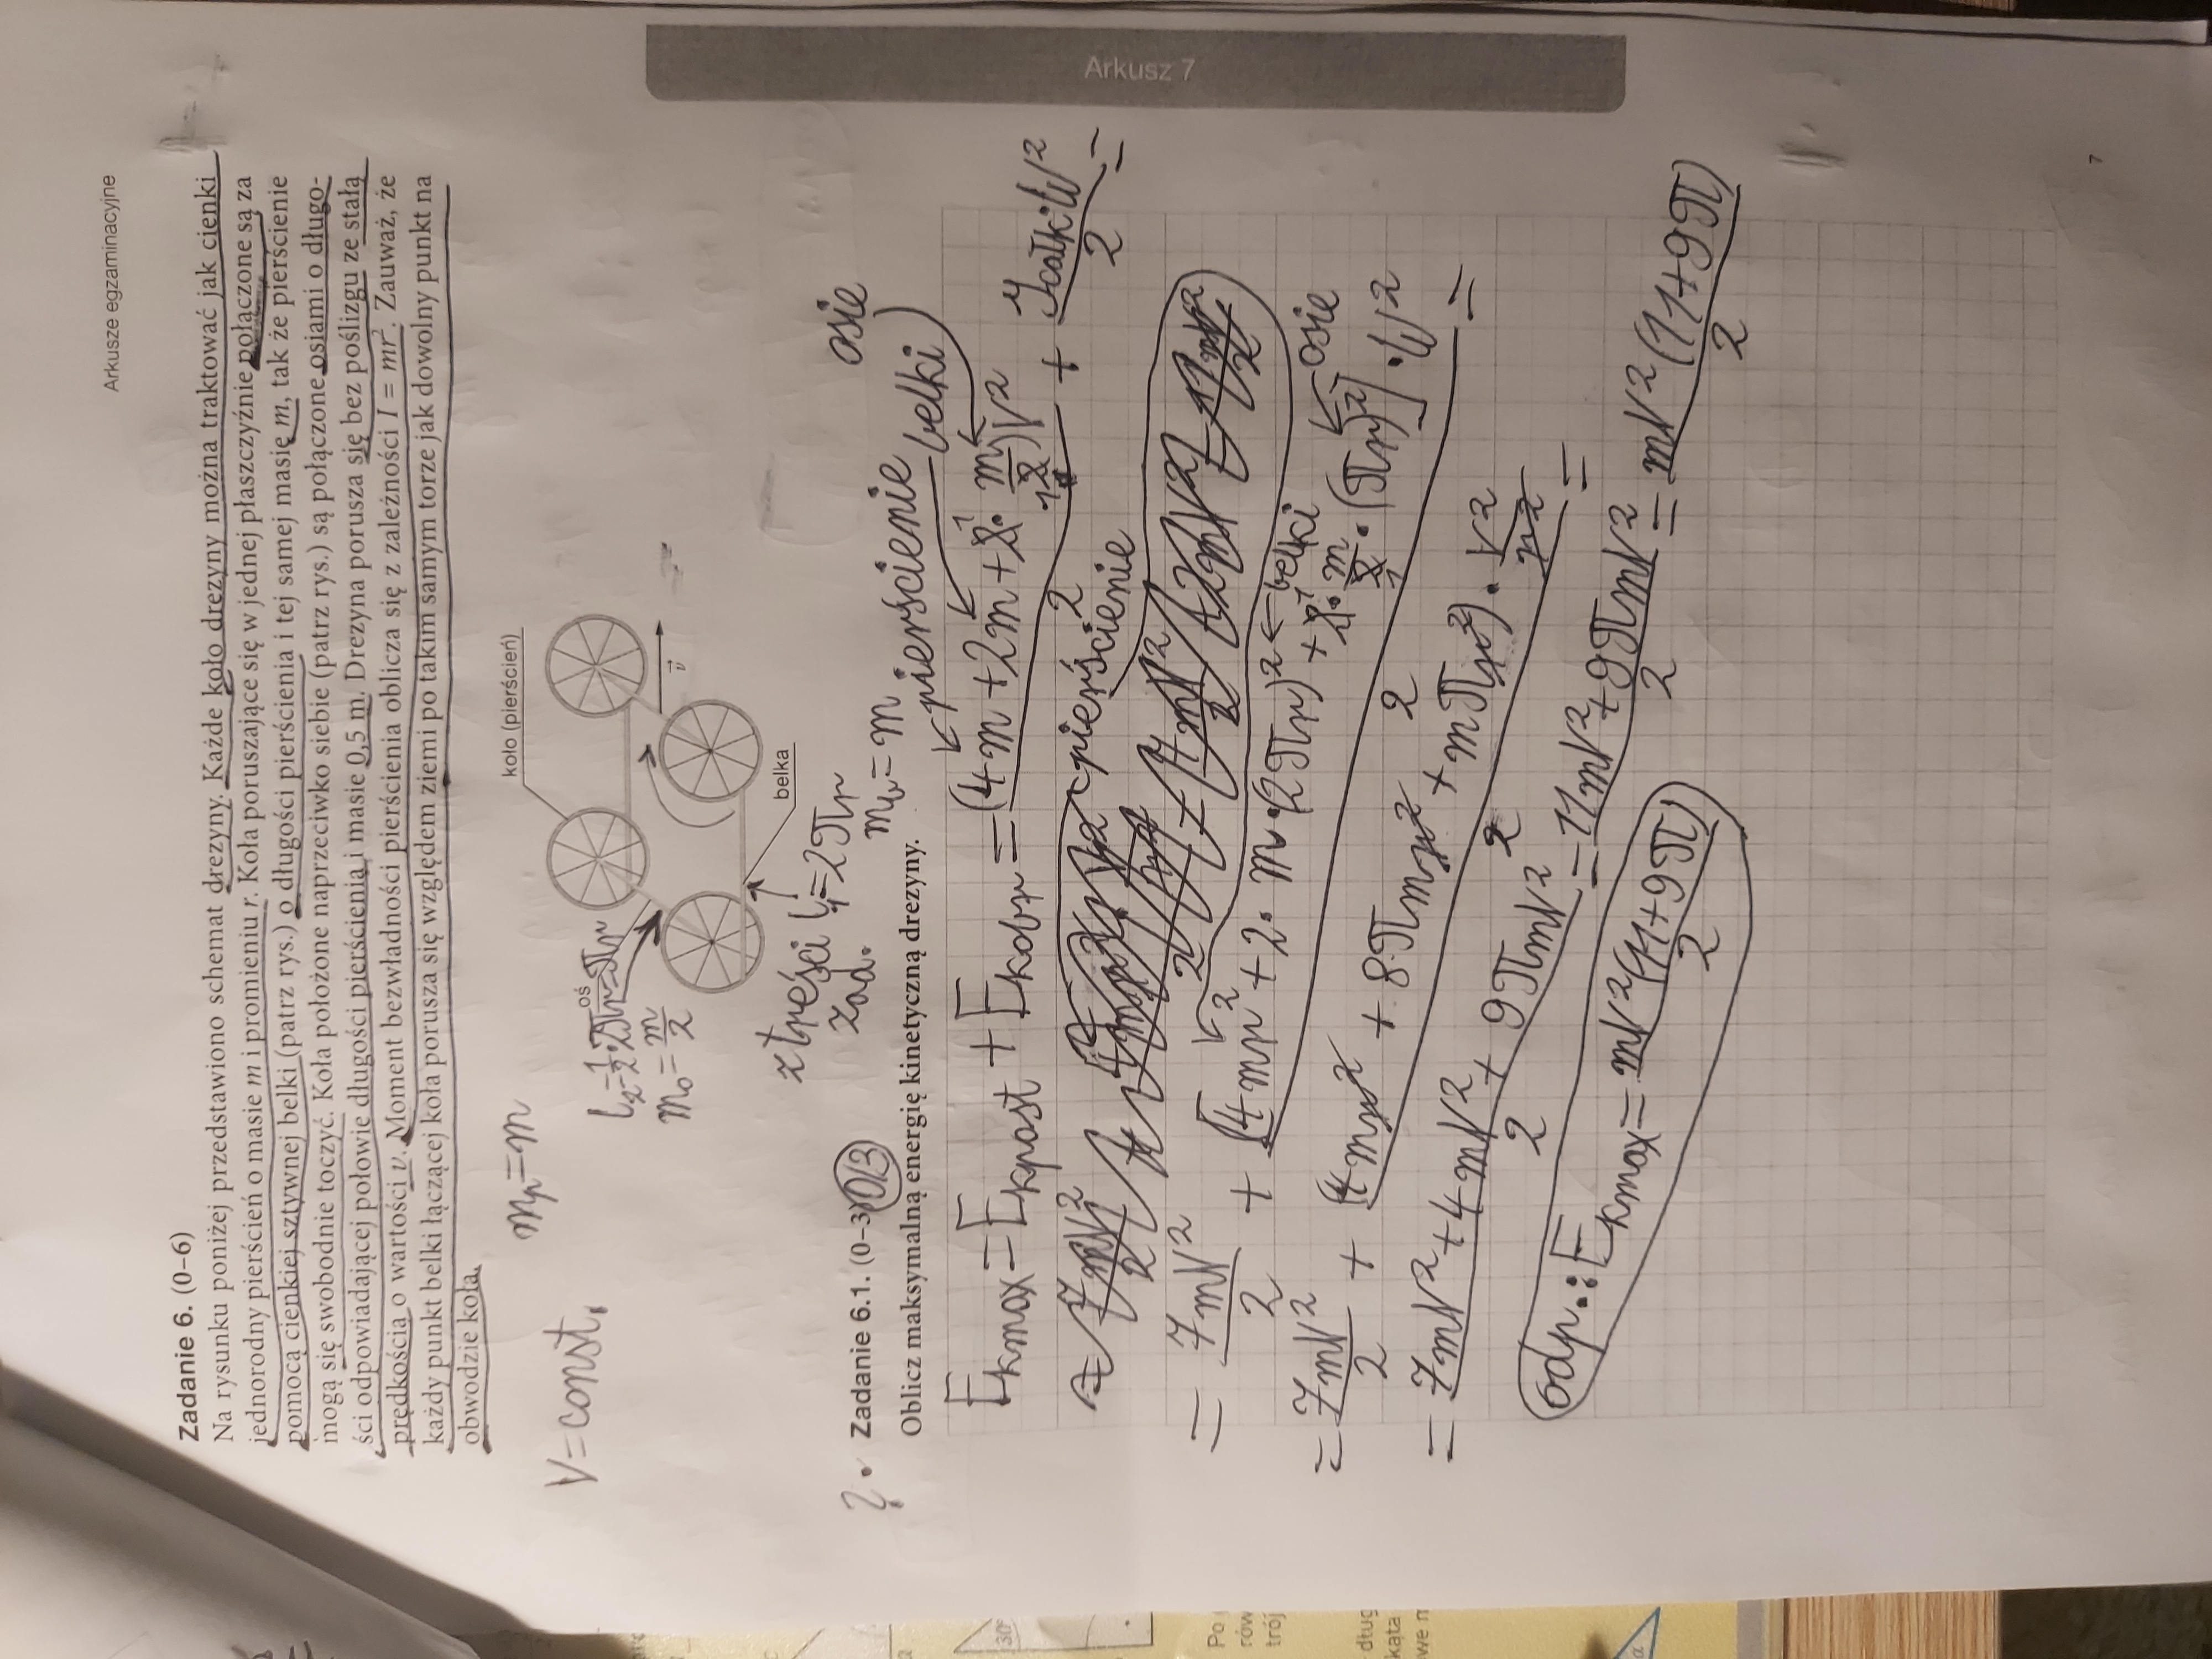 Arkusze egzaminacyjne
Zadanie 6. (0–6)
Na rysunku poniżej przedstawiono schemat drezyny. Każde koło drezyny można traktować jak cienki
jednorodny pierścień o masie m i promieniu r. Koła poruszające się w jednej płaszczyźnie połączone są za
pomocą cienkiej sztywnej belki (patrz rys.) o długości pierścienia i tej samej masie m, tak że pierścienie
mogą się swobodnie toczyć. Koła położone naprzeciwko siebie (patrz rys.) są połączone osiami o długo-
ści odpowiadającej połowie długości pierścienia i masie 0,5 m. Drezyna porusza się bez poślizgu ze stałą
prędkością o wartości v. Moment bezwładności pierścienia oblicza się z zależności I = mr². Zauważ, że
każdy punkt belki łączącej koła porusza się względem ziemi po takim samym torze jak dowolny punkt na
obwodzie koła.
V=const.
mp=m
koło (pierścień)
oś
l₂=½·2πr=πr
m₀=m/2
v
belka
z treści l₁=2πr
zad.
mb=m
? • Zadanie 6.1. (0–3) 0/3
Oblicz maksymalną energię kinetyczną drezyny.
pierścienie belki osie
Ekmax=Ekpost+Ekobr=(4m+2m+2·m/2)V²/2 + Icałk·ω²/2=
pierścienie
=7mV²/2 + [4mr²+2·m·(2πr)²←belki+2·m/2·(πr)²]·ω²/2= ←osie
=7mV²/2 + (4mr²+8πmr²+mπr²)·V²/r²/2=
=7mV²+4mV²+9πmV²/2=11mV²+9πmV²/2=mV²(11+9π)/2
odp.: Ekmax=mV²(11+9π)/2
Arkusz 7
7
30°
Po
rów
trój
dług
kąta
we n